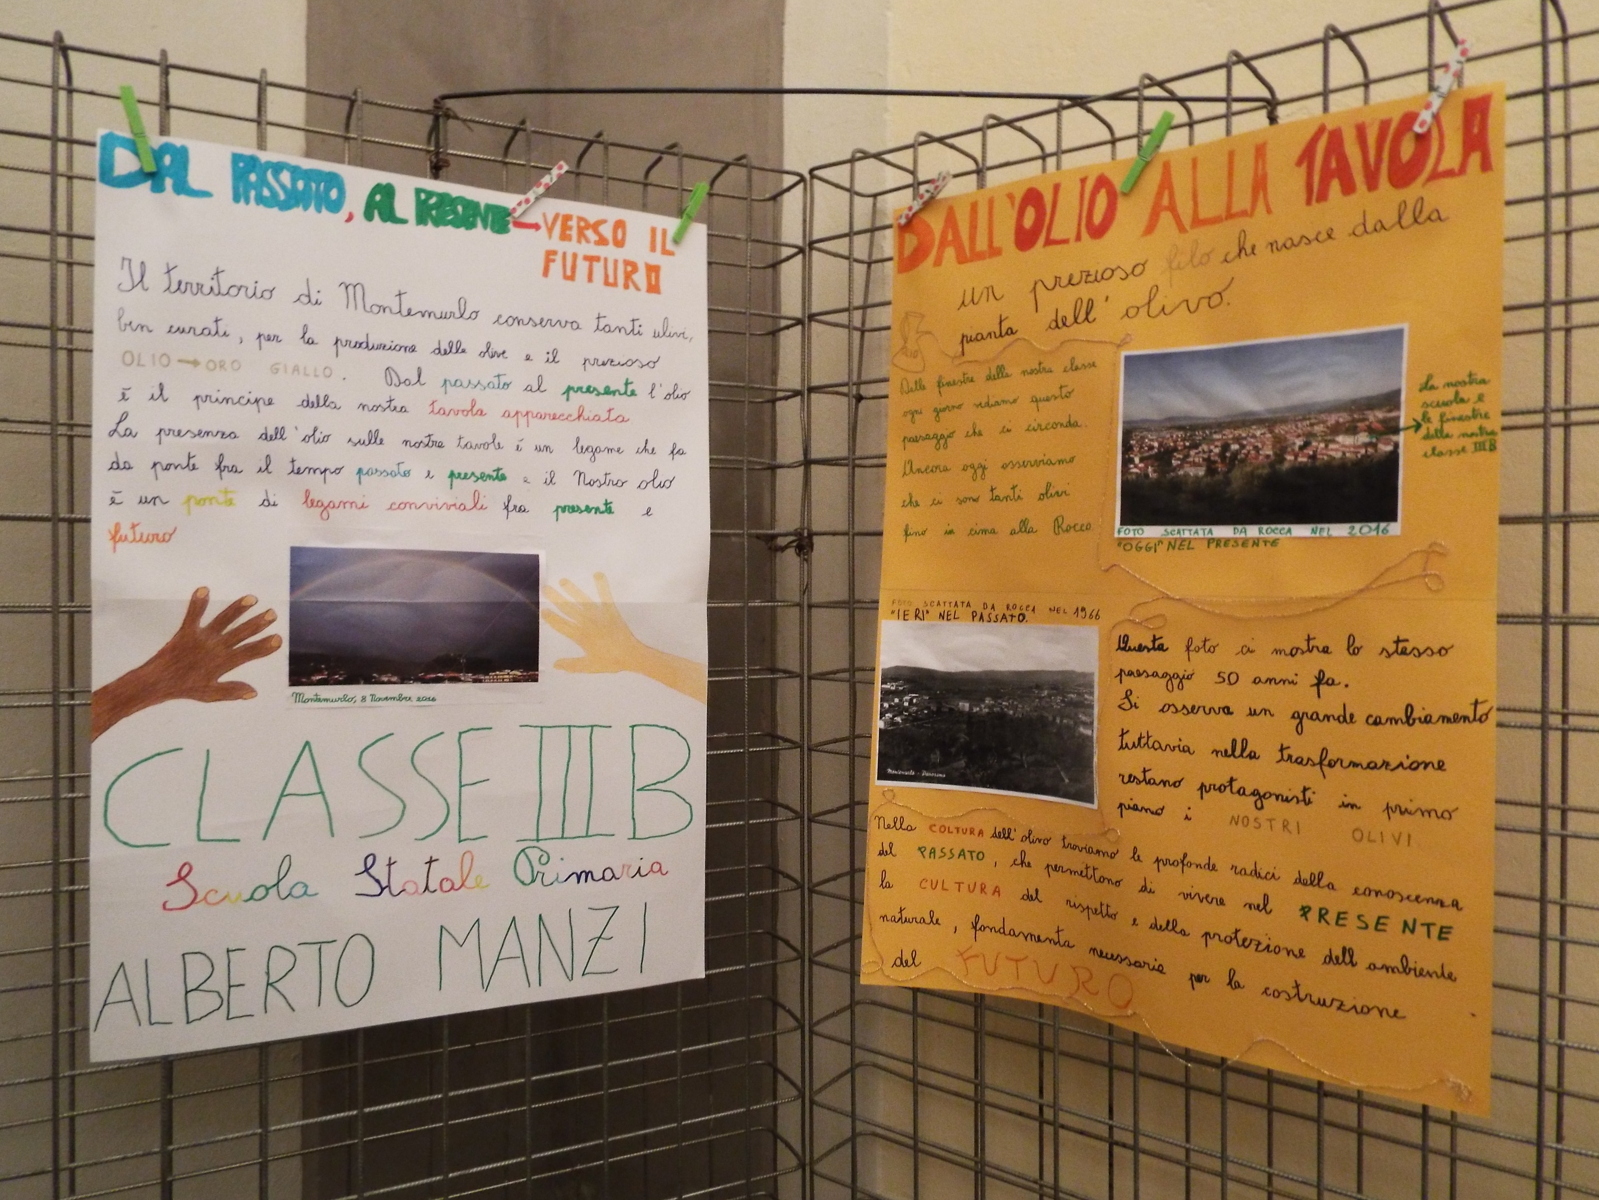 DAL PASSATO, AL PRESENTE → VERSO IL
FUTURO
Il territorio di Montemurlo conserva tanti ulivi,
ben curati, per la produzione delle olive e il prezioso
OLIO → ORO GIALLO. Dal passato al presente l'olio
è il principe della nostra tavola apparecchiata
La presenza dell'olio sulle nostre tavole è un legame che fa
da ponte fra il tempo passato e presente e il Nostro olio
è un ponte di legami conviviali fra presente e
futuro
Montemurlo, 8 Novembre 2016
CLASSE III B
Scuola Statale Primaria
ALBERTO MANZI
DALL'OLIO ALLA TAVOLA
un prezioso filo che nasce dalla
pianta dell'olivo.
OLIO
Dalle finestre della nostra classe
ogni giorno vediamo questo
paesaggio che ci circonda.
Ancora oggi osserviamo
che ci sono tanti olivi
fino in cima alla Rocca.
La nostra
scuola e
le finestre
della nostra
classe III B
FOTO SCATTATA DA ROCCA NEL 2016
"OGGI" NEL PRESENTE
FOTO SCATTATA DA ROCCA NEL 1966
"IERI" NEL PASSATO.
Montemurlo - Panorama
Questa foto ci mostra lo stesso
paesaggio 50 anni fa.
Si osserva un grande cambiamento
tuttavia nella trasformazione
restano protagonisti in primo
piamo i NOSTRI OLIVI
Nella COLTURA dell'olivo troviamo le profonde radici della conoscenza
del PASSATO, che permettono di vivere nel PRESENTE
la CULTURA del rispetto e della protezione dell'ambiente
naturale, fondamenta necessarie per la costruzione
del FUTURO